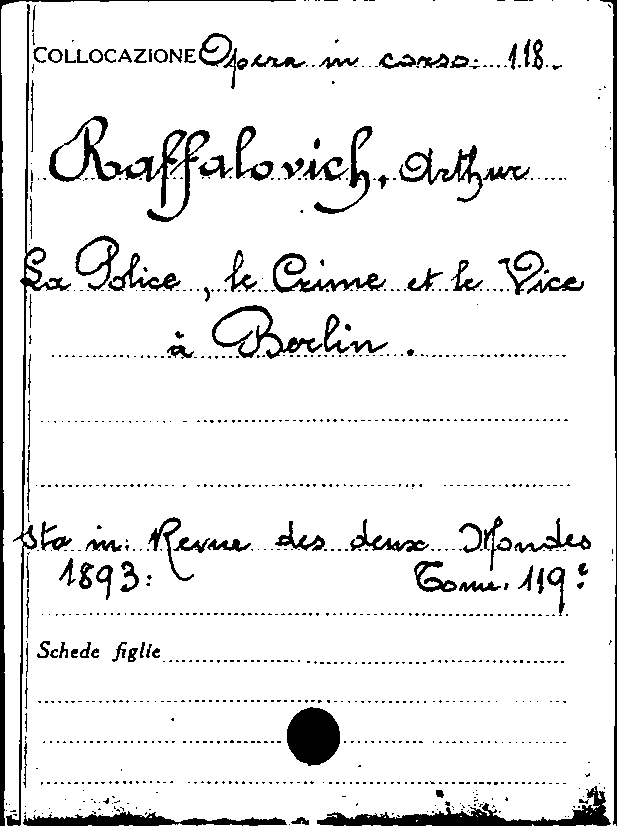 COLLOCAZIONE Opera in corso. 118.
Raffalovich, Arthur
La Police, le Crime et le Vice
à Berlin.
Sta in: Revue des deux Mondes
1893. Tome. 119e
Schede figlie